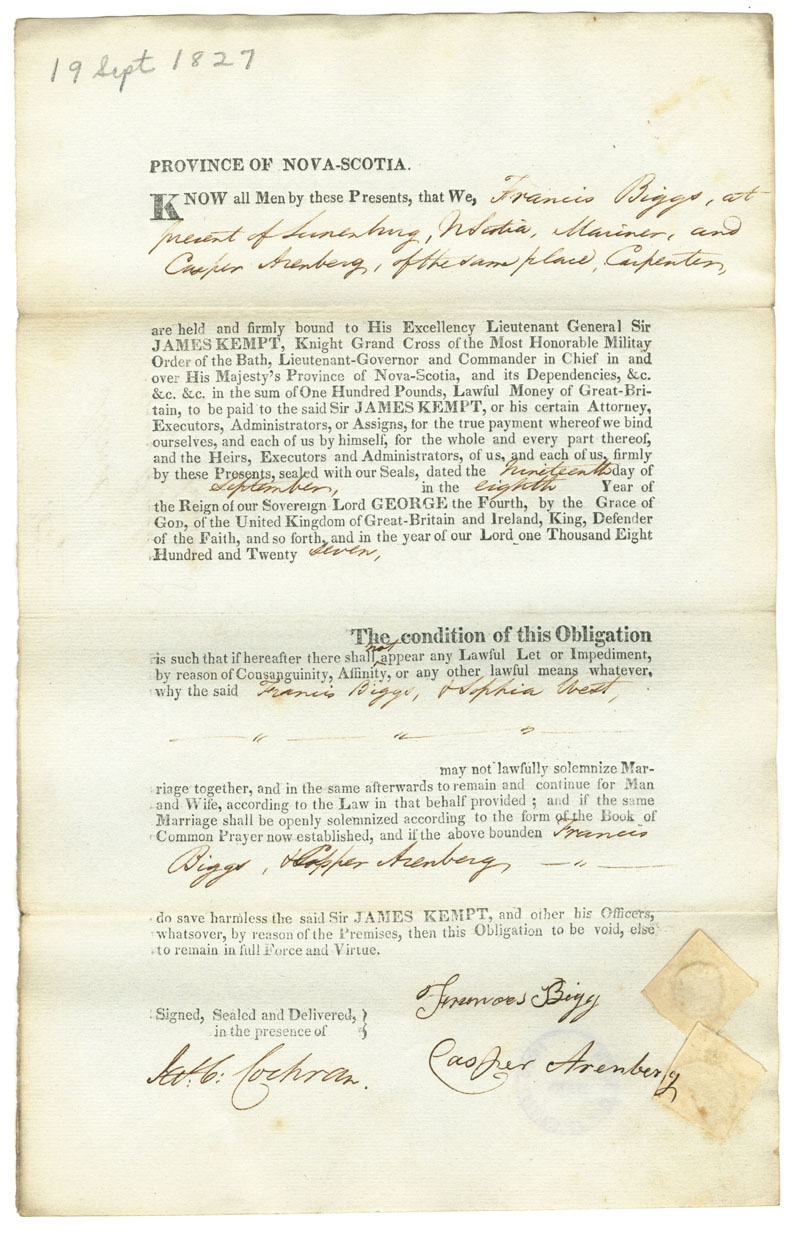 19 Sept 1827
PROVINCE OF NOVA-SCOTIA.
KNOW all Men by these Presents, that We, Francis Biggs, at
present of Lunenburg, N Scotia, Mariner, and
Casper Arenberg, of the same place, Carpenter,
are held and firmly bound to His Excellency Lieutenant General Sir
JAMES KEMPT, Knight Grand Cross of the Most Honorable Militay
Order of the Bath, Lieutenant-Governor and Commander in Chief in and
over His Majesty's Province of Nova-Scotia, and its Dependencies, &c.
&c. &c. in the sum of One Hundred Pounds, Lawful Money of Great-Bri-
tain, to be paid to the said Sir JAMES KEMPT, or his certain Attorney,
Executors, Administrators, or Assigns, for the true payment whereof we bind
ourselves, and each of us by himself, for the whole and every part thereof,
and the Heirs, Executors and Administrators, of us, and each of us, firmly
by these Presents, sealed with our Seals, dated the nineteenth day of
September, in the eighth Year of
the Reign of our Sovereign Lord GEORGE the Fourth, by the Grace of
GOD, of the United Kingdom of Great-Britain and Ireland, King, Defender
of the Faith, and so forth, and in the year of our Lord one Thousand Eight
Hundred and Twenty seven,
The condition of this Obligation
is such that if hereafter there shall not appear any Lawful Let or Impediment,
by reason of Consanguinity, Affinity, or any other lawful means whatever,
why the said Francis Biggs, & Sophia West,
may not lawfully solemnize Mar-
riage together, and in the same afterwards to remain and continue for Man
and Wife, according to the Law in that behalf provided ; and if the same
Marriage shall be openly solemnized according to the form of the Book of
Common Prayer now established, and if the above bounden Francis
Biggs, & Casper Arenberg
do save harmless the said Sir JAMES KEMPT, and other his Officers,
whatsover, by reason of the Premises, then this Obligation to be void, else
to remain in full Force and Virtue.
Signed, Sealed and Delivered, }
in the presence of }
Frances Bigg
Casper Arenberg
Cochran.